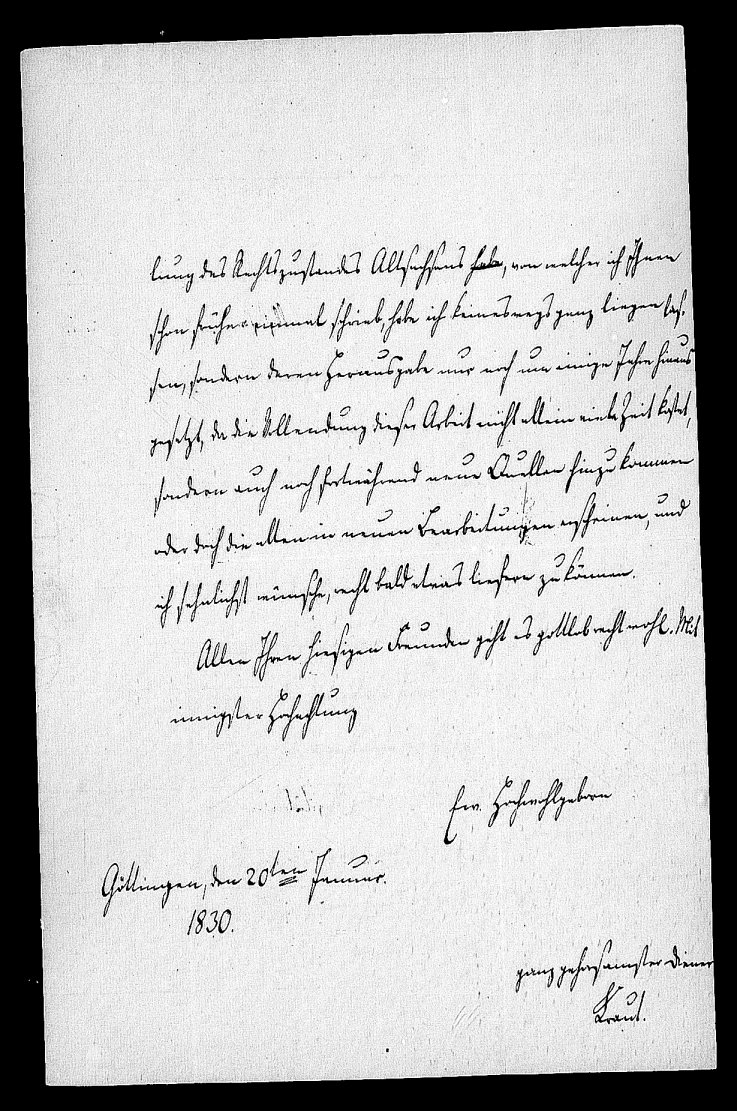 lung des Rechtszustandes Altsachsens habe, von welcher ich Ihnen
schon früher einmal schrieb, habe ich keineswegs ganz liegen las-
sen, sondern deren Herausgabe nur noch um einige Jahre hinaus
gesetzt, da die Vollendung dieser Arbeit nicht allein viele Zeit kostet,
sondern auch noch fortwährend neue Quellen hinzu kommen
oder doch die alten in neuen Bearbeitungen erscheinen, und
ich sehnlichst wünsche, recht bald etwas liefern zu können.
Allen Ihren hiesigen Freunden geht es gottlob recht wohl. Mit
innigster Hochachtung
Ew. Hochwohlgeborn
Göttingen, den 20ten Januar.
1830.
ganz gehorsamster Diener
Kraut.